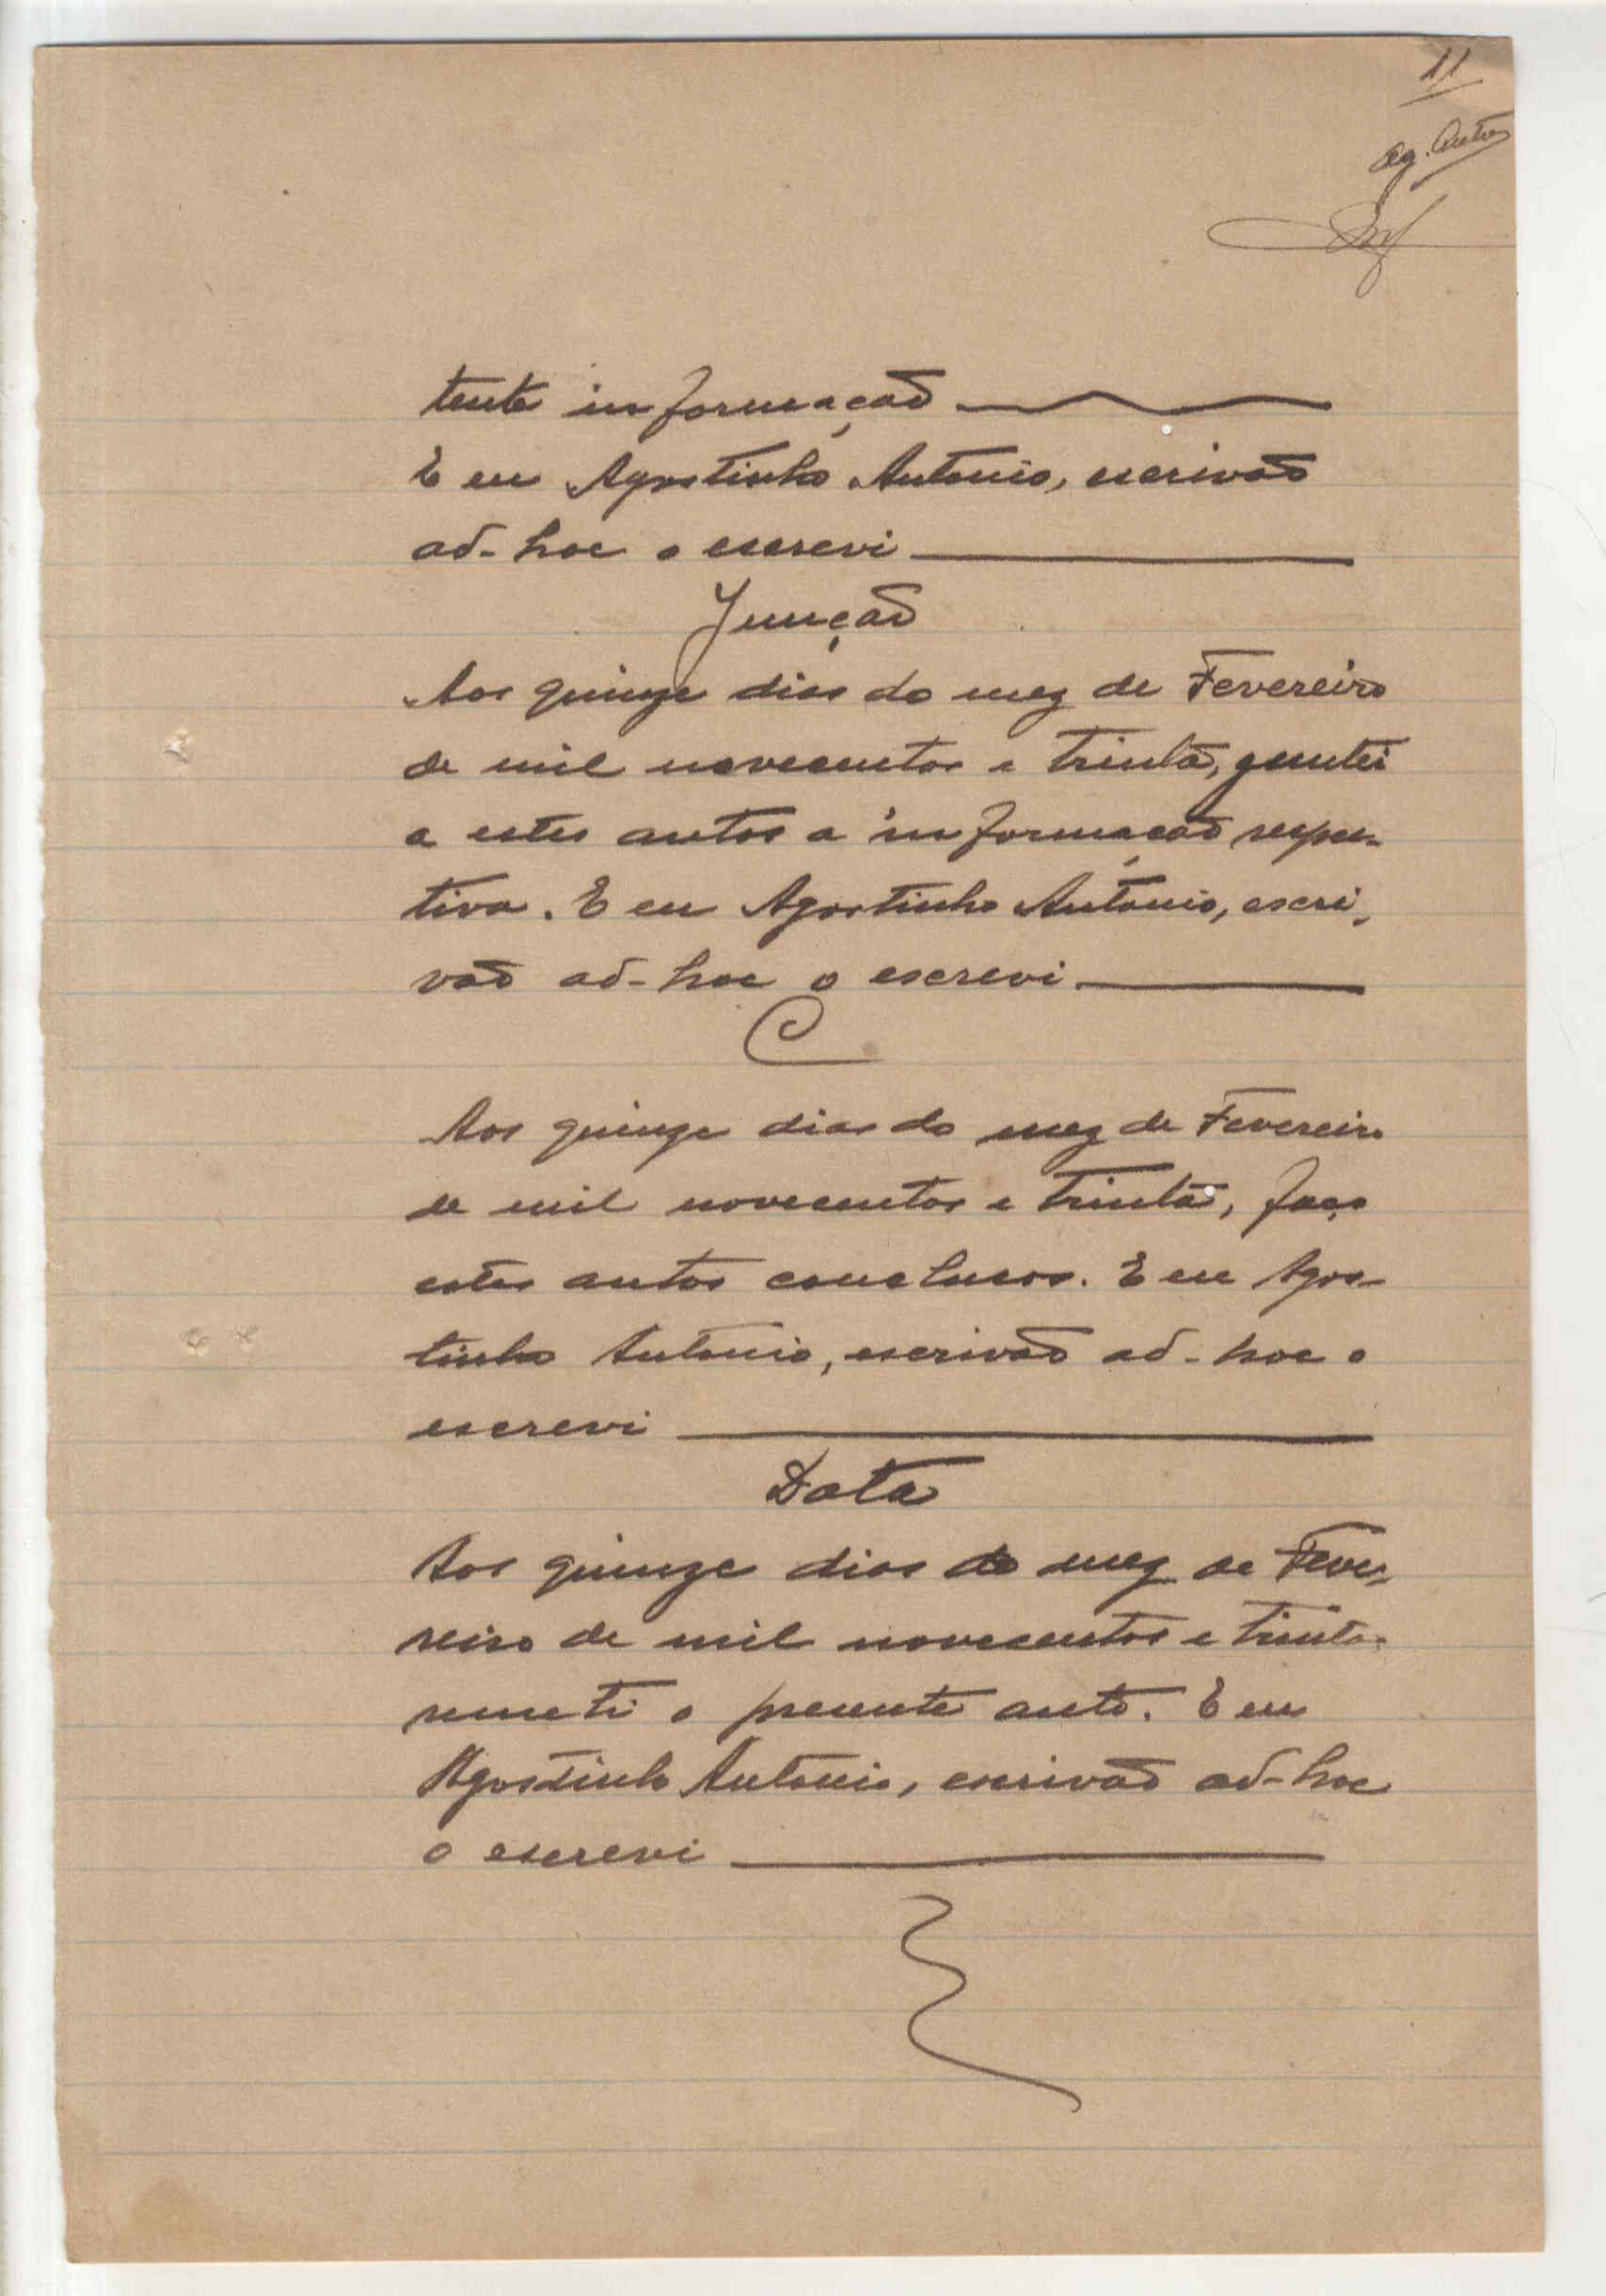 11
Ag. Anto
tente informação
E eu Agostinho Antonio, escrivão
ad-hoc o escrevi
Junção
Aos quinze dias do mez de Fevereiro
de mil novecentos e trinta, juntei
a estes autos a informação respe-
tiva. E eu Agostinho Antonio, escri-
vão ad-hoc o escrevi
C
Aos quinze dias do mez de Fevereiro
de mil novecentos e trinta, faço
estes autos conclusos. E eu Agos-
tinho Antonio, escrivão ad-hoc o
escrevi
Data
Aos quinze dias do mez de Feve-
reiro de mil novecentos e trinta
remeti o presente auto. E eu
Agostinho Antonio, escrivão ad-hoc
o escrevi